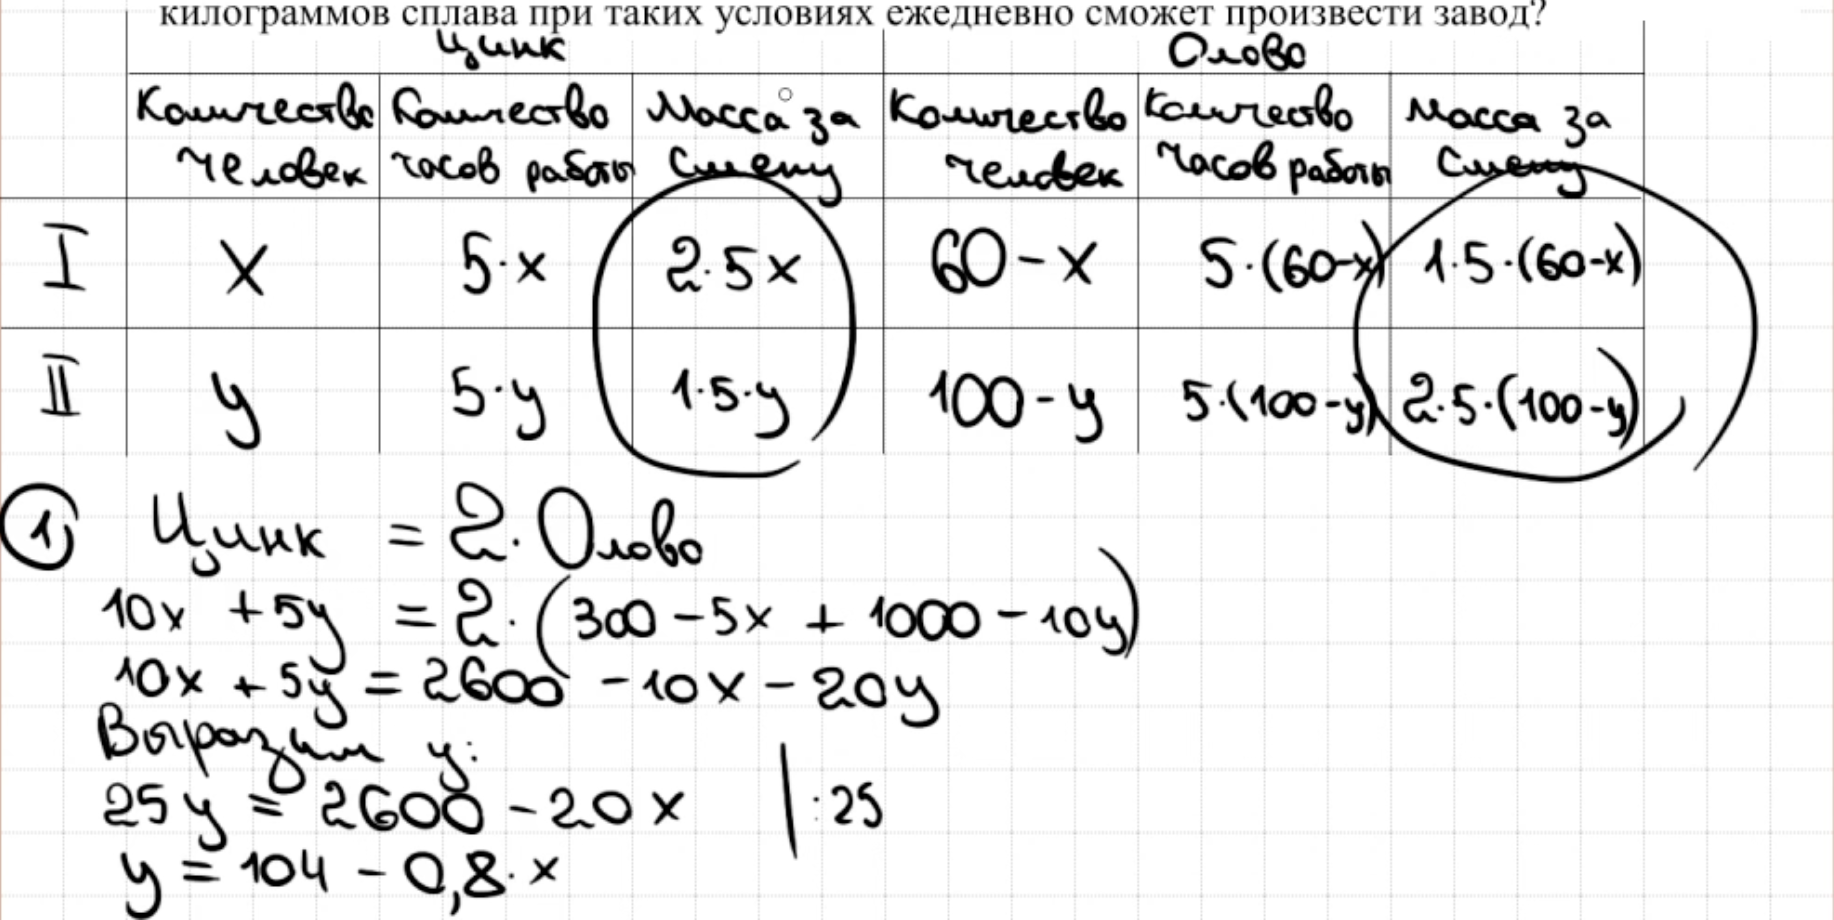 килограммов сплава при таких условиях ежедневно сможет произвести завод?
Цинк Олово
Количество человек Количество часов работы Масса за смену Количество человек Количество часов работы Масса за смену
I x 5·x 2·5x 60-x 5·(60-x) 1·5·(60-x)
II y 5·y 1·5·y 100-y 5·(100-y) 2·5·(100-y)
1) Цинк = 2·Олово
10x + 5y = 2·(300 - 5x + 1000 - 10y)
10x + 5y = 2600 - 10x - 20y
Выразим y:
25y = 2600 - 20x |:25
y = 104 - 0,8·x